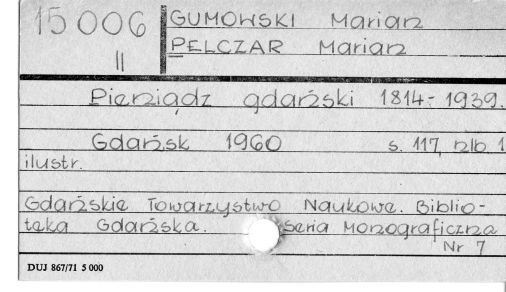 15006
II
GUMOWSKI Marian
PELCZAR Marian
Pieniądz gdański 1814-1939.
Gdańsk 1960 s. 117, nlb 1
ilustr.
Gdańskie Towarzystwo Naukowe. Biblio-
teka Gdańska. Seria Monograficzna
Nr 7
DUJ 867/71 5 000